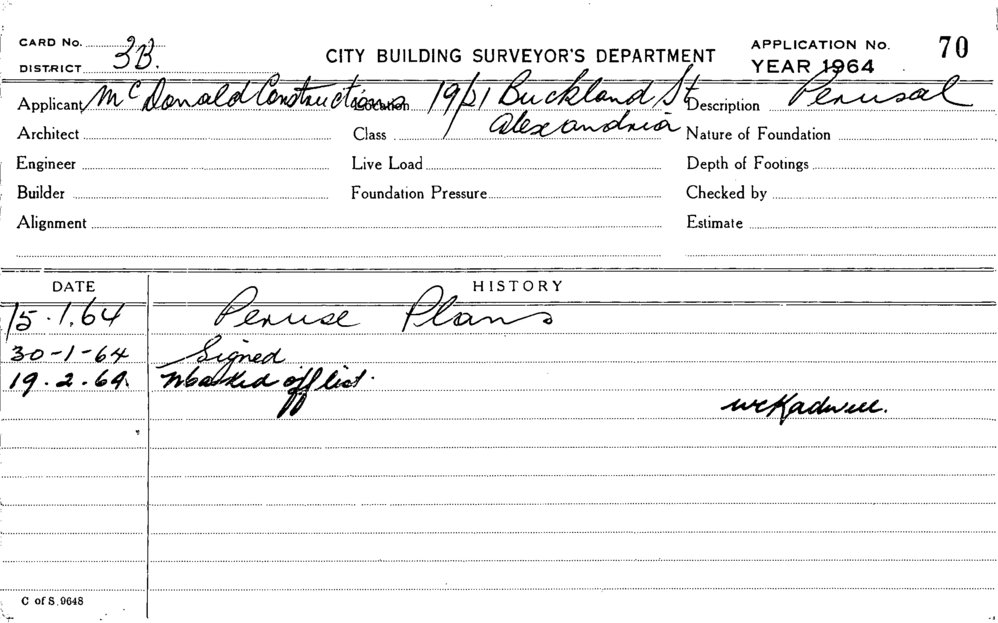 CARD No.
DISTRICT 3B.
CITY BUILDING SURVEYOR'S DEPARTMENT
APPLICATION No. 70
YEAR 1964
Applicant McDonald Constructions Location 19/21 Buckland St Description Perusal
Alexandria
Architect Class Nature of Foundation
Engineer Live Load Depth of Footings
Builder Foundation Pressure Checked by
Alignment Estimate
DATE HISTORY
15.1.64 Peruse Plans
30-1-64 Signed
19.2.64 Marked off list.
C of S. 9648